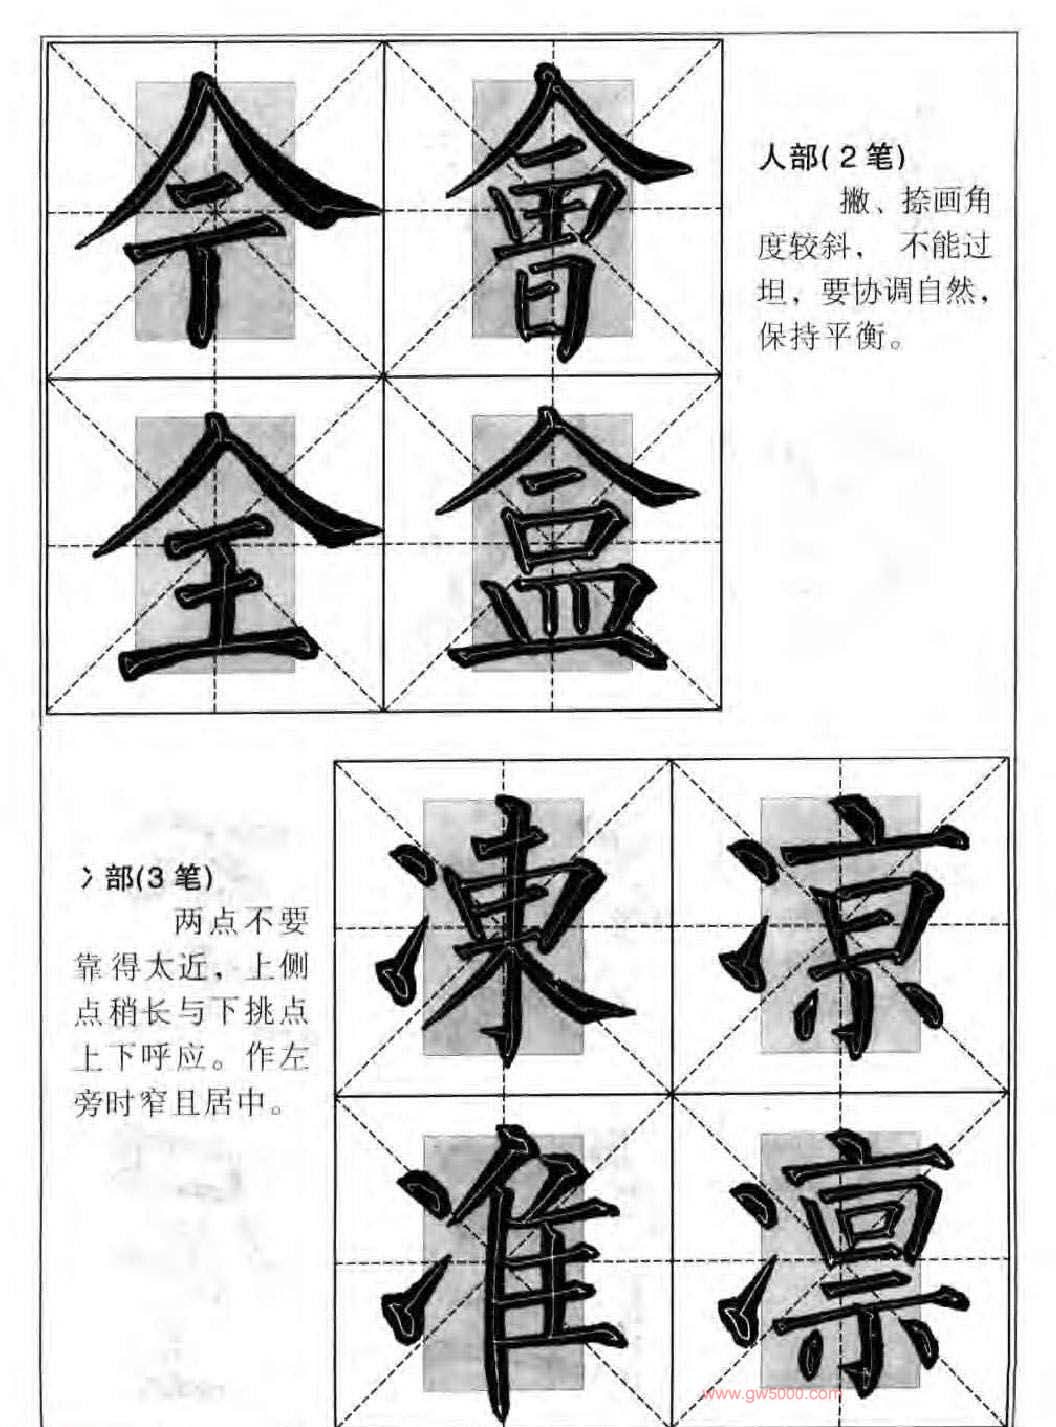 今會
人部(2笔)
撇、捺画角
度较斜， 不能过
坦，要协调自然，
保持平衡。
全盒
凍凉
冫部(3笔)
两点不要
靠得太近，上侧
点稍长与下挑点
上下呼应。作左
旁时窄且居中。
准凛
www.gw5000.com